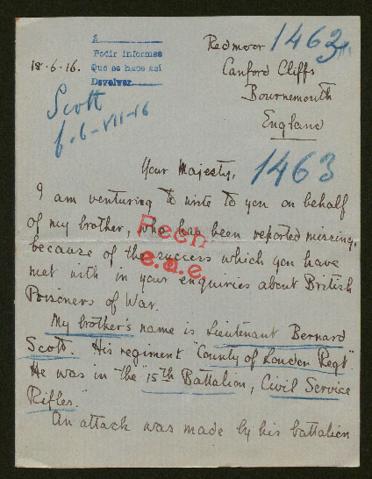 A
Pedir informes
Que se hace así
Devolver
18-6-16.
Scott
f. 6-VII-16
Redmoor
1463
Canford Cliffs
Bournemouth
England
1463
Your Majesty,
I am venturing to write to you on behalf
of my brother, who has been reported missing,
because of the success which you have
met with in your enquiries about British
Prisoners of War.
Rech
e.a.e.
My brother's name is Lieutenant Bernard
Scott. His regiment "County of London Regt"
He was in the "15th Battalion, Civil Service
Rifles."
An attack was made by his battalion